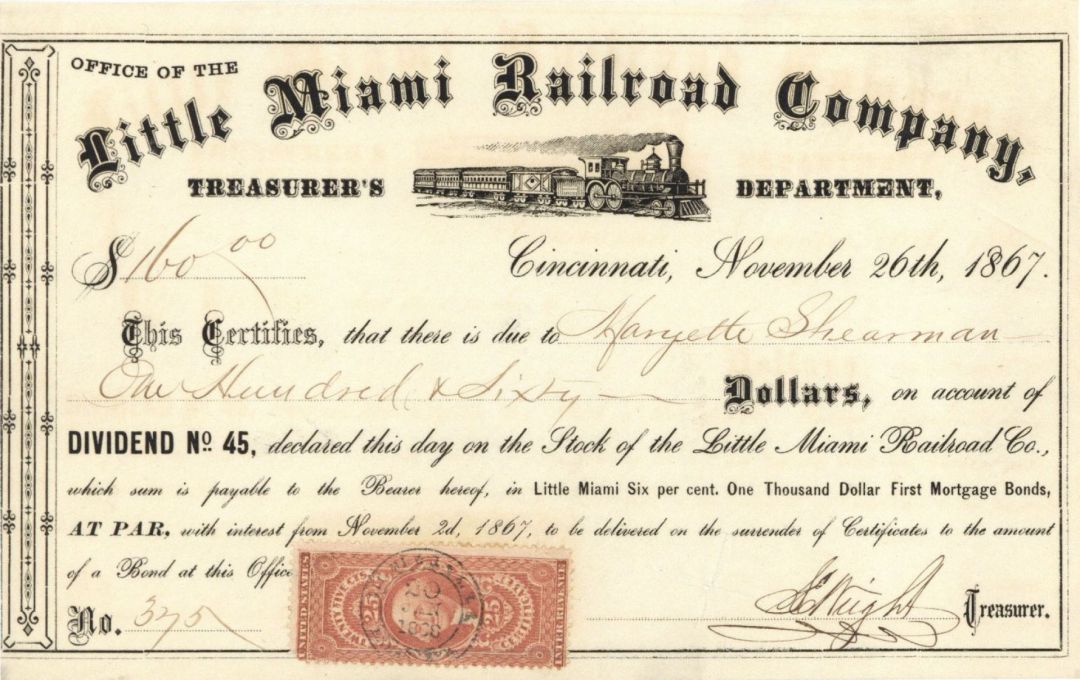 OFFICE OF THE
Little Miami Railroad Company,
TREASURER'S DEPARTMENT,
$160 00 Cincinnati, November 26th, 1867.
This Certifies, that there is due to Haryette Shearman
One Hundred & Sixty Dollars, on account of
DIVIDEND No. 45, declared this day on the Stock of the Little Miami Railroad Co.,
which sum is payable to the Bearer hereof, in Little Miami Six per cent. One Thousand Dollar First Mortgage Bonds,
AT PAR, with interest from November 2d, 1867, to be delivered on the surrender of Certificates to the amount
of a Bond at this Office
No. 375 Wright Treasurer.
UNITED STATES
25
25
INTER. REVENUE
20